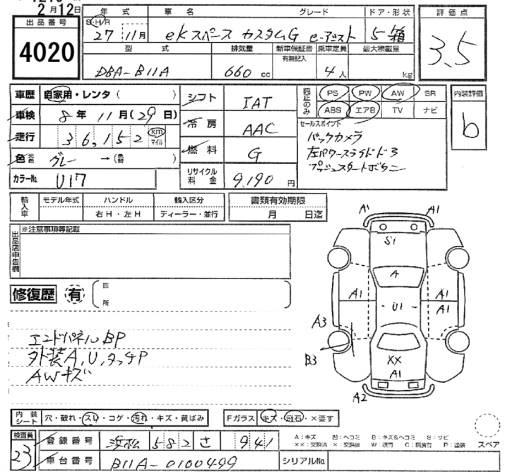 2月12日
出品番号
4020
年式 車名 グレード ドア・形状
S・H/R
27 11月 eKスペース カスタムG e-アシスト 5-箱
型式 排気量 新車保証書 有無記入 乗車定員 最大積載量
DBA-B11A 660 cc 4人 kg
評価点
3.5
車歴 自家用・レンタ( )
車検 8年11月(29日)
走行 36,152 km マイル
色 グレー →( )
カラーNo U17
シフト IAT
冷房 AAC
燃料 G
リサイクル料金 9,190円
PS PW AW SR
ABS エアB TV ナビ
セールスポイント
バックカメラ
左パワースライドドア
プッシュスタートボタン
内装評価
b
輸入車 モデル年式 ハンドル 輸入区分 書類有効期限
右H・左H ディーラー・並行 月 日迄
出品店申告欄
※注意事項等記載
修復歴 有
箇所
エンドパネルBP
外装A,U,タッチP
AWキズ
A1 A1
S1
A
A1 U1 A1
A3
B3
XX
A1
A2
内装シート 穴・破れ・スレ・コゲ・汚れ・キズ・黄ばみ
Fガラス キズ・飛石・×要す
検査員
23
登録番号 浜松 582 さ 941
車台番号 B11A-0100499
シリアルNo
スペア